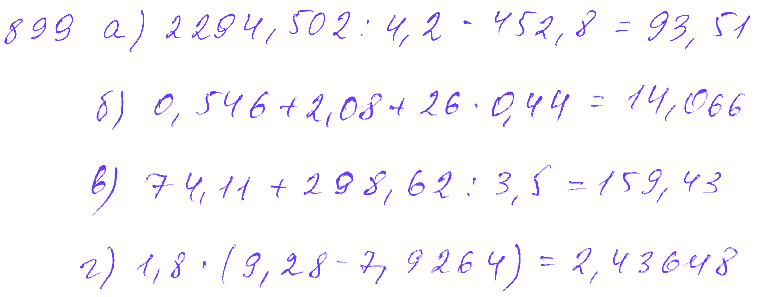 899 а) 2294,502 : 4,2 - 452,8 = 93,51
б) 0,546 + 2,08 + 26 · 0,44 = 14,066
в) 74,11 + 298,62 : 3,5 = 159,43
г) 1,8 · (9,28 - 7,9264) = 2,43648